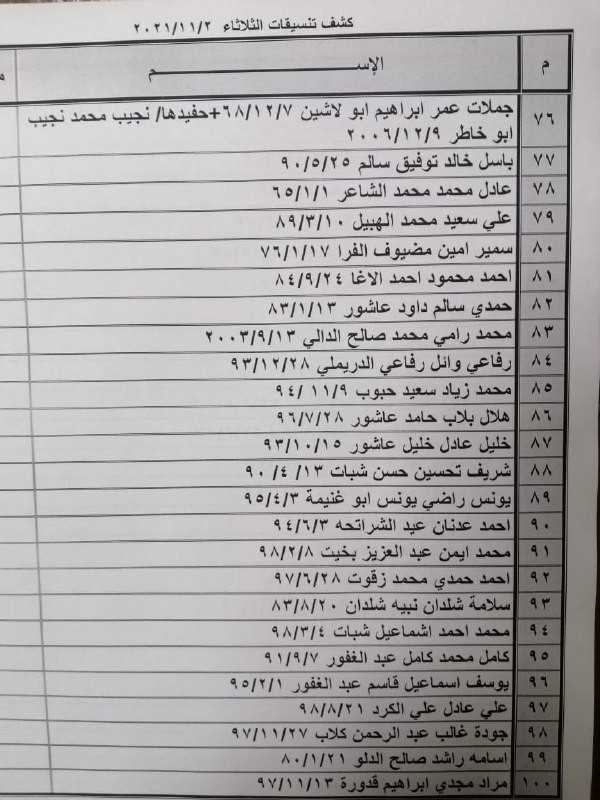 كشف تنسيقات الثلاثاء ٢٠٢١/١١/٢
م الإســـــــم
٧٦ جملات عمر ابراهيم ابو لاشين ٦٨/١٢/٧+حفيدها/ نجيب محمد نجيب
ابو خاطر ٢٠٠٦/١٢/٩
٧٧ باسل خالد توفيق سالم ٩٠/٥/٢٥
٧٨ عادل محمد محمد الشاعر ٦٥/١/١
٧٩ علي سعيد محمد الهبيل ٨٩/٣/١٠
٨٠ سمير امين مضيوف الفرا ٧٦/١/١٧
٨١ احمد محمود احمد الاغا ٨٤/٩/٢٤
٨٢ حمدي سالم داود عاشور ٨٣/١/١٣
٨٣ محمد رامي محمد صالح الدالي ٢٠٠٣/٩/١٣
٨٤ رفاعي وائل رفاعي الدريملي ٩٣/١٢/٢٨
٨٥ محمد زياد سعيد حبوب ١١/٩ /٩٤
٨٦ هلال بلاب حامد عاشور ٩٦/٧/٢٨
٨٧ خليل عادل خليل عاشور ٩٣/١٠/١٥
٨٨ شريف تحسين حسن شبات ١٣/ ٤/ ٩٠
٨٩ يونس راضي يونس ابو غنيمة ٩٥/٤/٣
٩٠ احمد عدنان عيد الشراتحه ٩٤/٦/٣
٩١ محمد ايمن عبد العزيز بخيت ٩٨/٢/٨
٩٢ احمد حمدي محمد زقوت ٩٧/٦/٢٨
٩٣ سلامة شلدان نبيه شلدان ٨٣/٨/٢٠
٩٤ محمد احمد اشماعيل شبات ٩٨/٣/٤
٩٥ كامل محمد كامل عبد الغفور ٩١/٩/٧
٩٦ يوسف اسماعيل قاسم عبد الغفور ٩٥/٢/١
٩٧ علي عادل علي الكرد ٩٨/٨/٢١
٩٨ جودة غالب عبد الرحمن كلاب ٩٧/١١/٢٧
٩٩ اسامه راشد صالح الدلو ٨٠/١/٢١
١٠٠ مراد مجدي ابراهيم قدورة ٩٧/١١/١٣